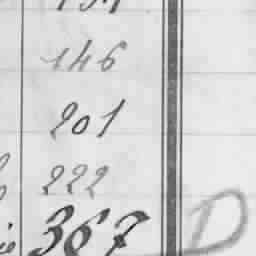 146
201
222
367 D